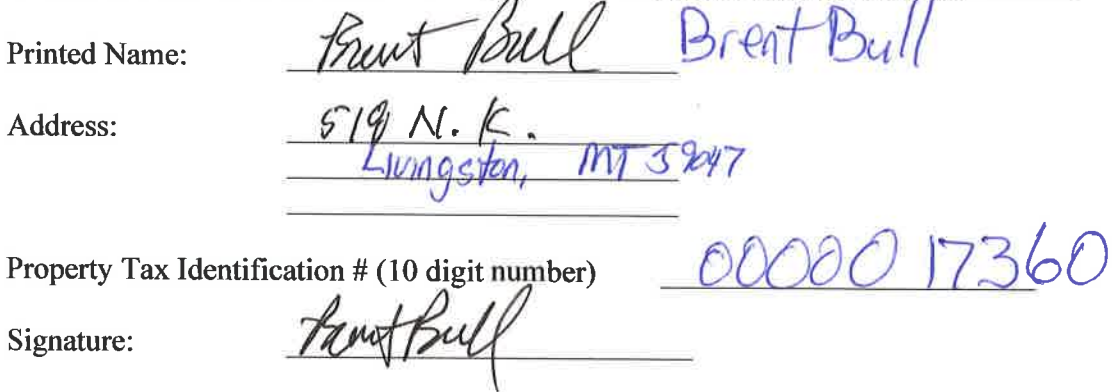 Printed Name: Brent Bull Brent Bull
Address: 519 N. K.
Livingston, MT 59047
Property Tax Identification # (10 digit number) 0000017360
Signature: Brent Bull